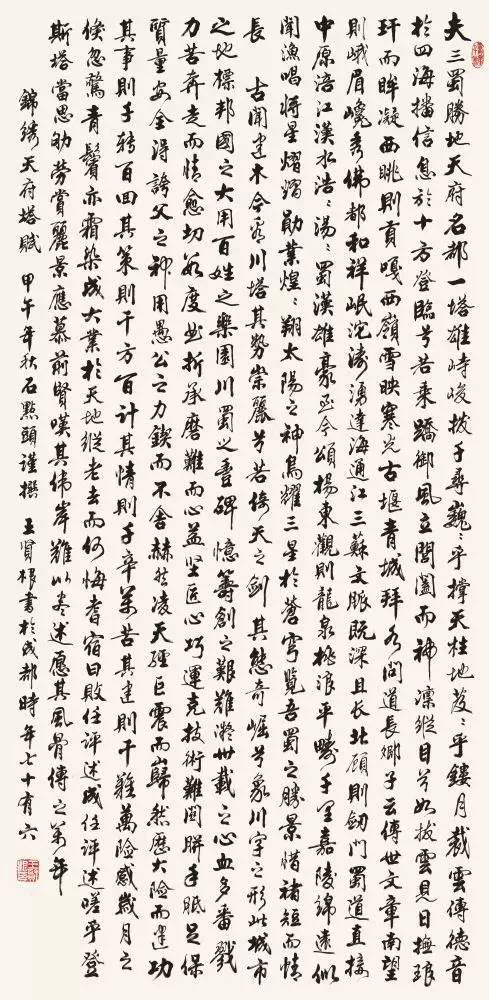 夫三蜀勝地天府名都一塔雄峙峻拔千尋巍巍乎撐天柱地茂茂乎鏤月裁雲傳德音
於四海播信息於十方登臨兮若乘蹻御風立閶闔而神凜縱目兮如拔雲見日撫琅
玕而眸凝西眺則貢嘎西嶺雪映寒光古堰青城拜水問道長卿子雲傳世文章南望
則峨眉巉秀佛都和祥岷沱濤湧達海通江三蘇文脈既深且長北顧則劍門蜀道直接
中原涪江漢水浩浩湯湯蜀漢雄豪至今頌揚東觀則龍泉桃浪平疇千里嘉陵綿遠似
聞漁唱將星熠熠勛業煌煌翔太陽之神鳥耀三星於蒼穹覽吾蜀之勝景惜褚短而情
長
古聞建木今看川塔其勢崇麗兮若倚天之劍其態奇崛兮象川字之形此城市
之地標邦國之大用百姓之樂園川蜀之豐碑憶籌創之艱難瀝卅載之心血多番戮
力苦奔走而情愈切数度曲折承磨難而心益堅匠心巧運克技術難関胼手胝足保
質量安全得誇父之神用愚公之力鍥而不舍赫然凌天經巨震而巋然歷大險而建功
其事則千轉百回其策則千方百計其情則千辛萬苦其建則千難萬險感歲月之
倏忽驚青鬢亦霜染成大業於天地縱老去而何悔耆宿曰敗任評述成任評述嗟乎登
斯塔當思劬勞賞麗景應慕前賢嘆其偉岸難以盡述願其風骨傳之萬年
錦綉天府塔賦 甲午年秋石點頭謹撰 王賢根書於成都時年七十有六